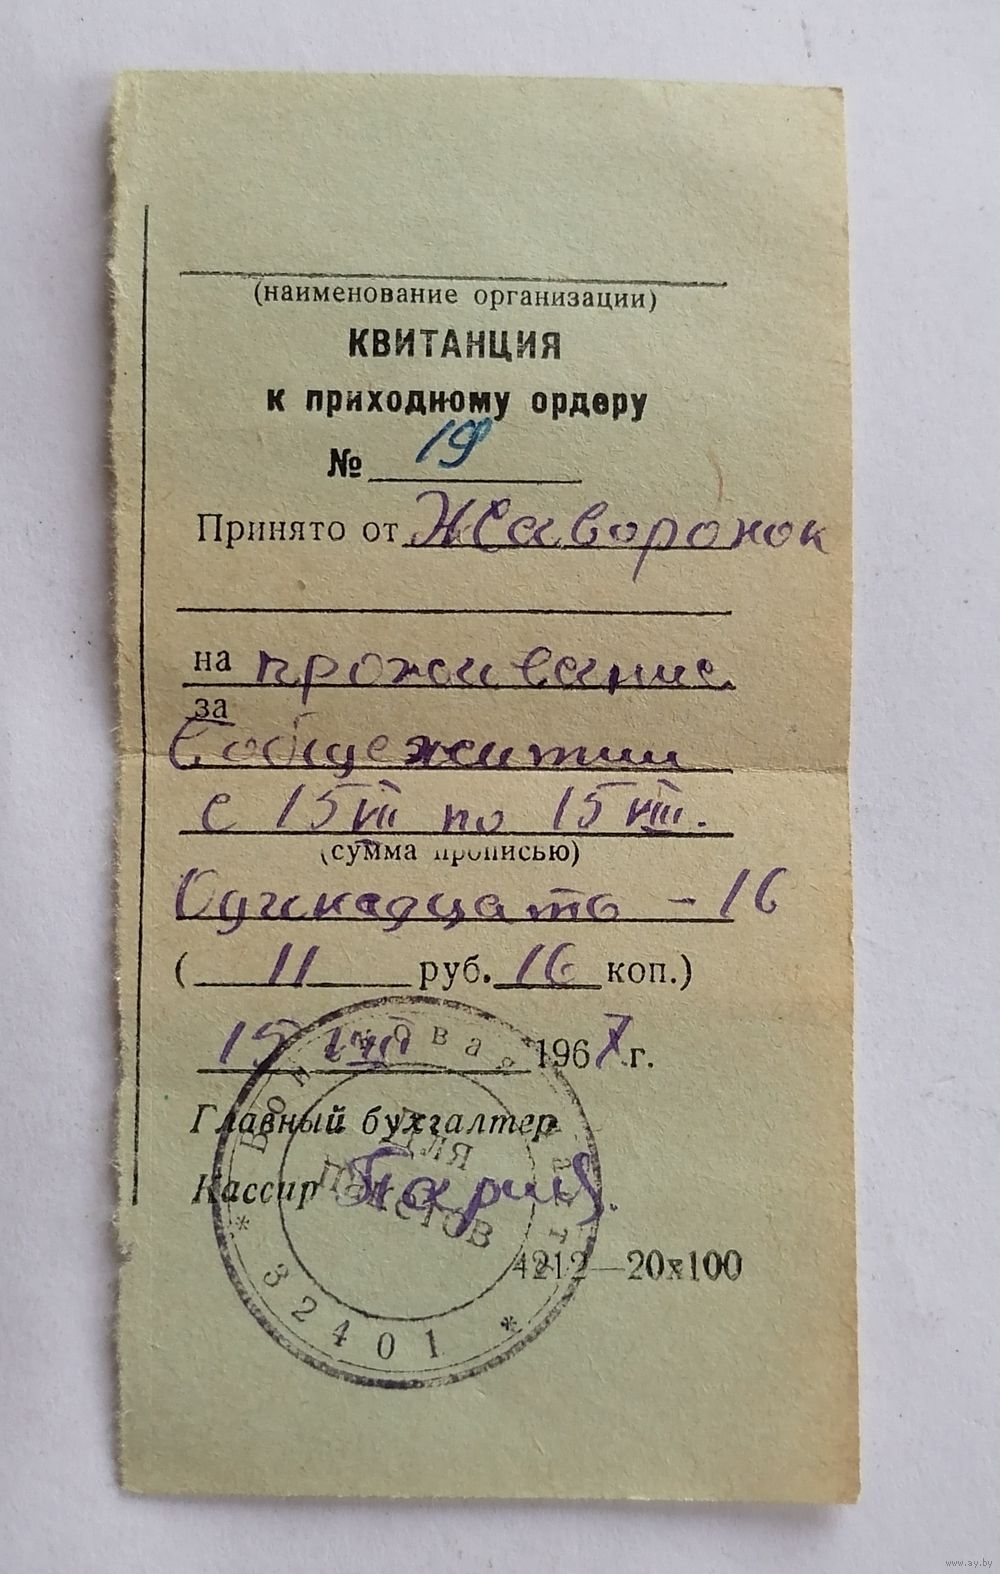 (наименование организации)
КВИТАНЦИЯ
к приходному ордеру
№ 19
Принято от Жаворонок
на проживание
за
в общежитии
с 15 VII по 15 VIII.
(сумма прописью)
Одинадцать - 16
( 11 руб. 16 коп.)
15 VIII 1967 г.
Главный бухгалтер
Кассир
4212—20х100
Войсковая часть
* 32401 *
Для
пакетов
www.ay.by